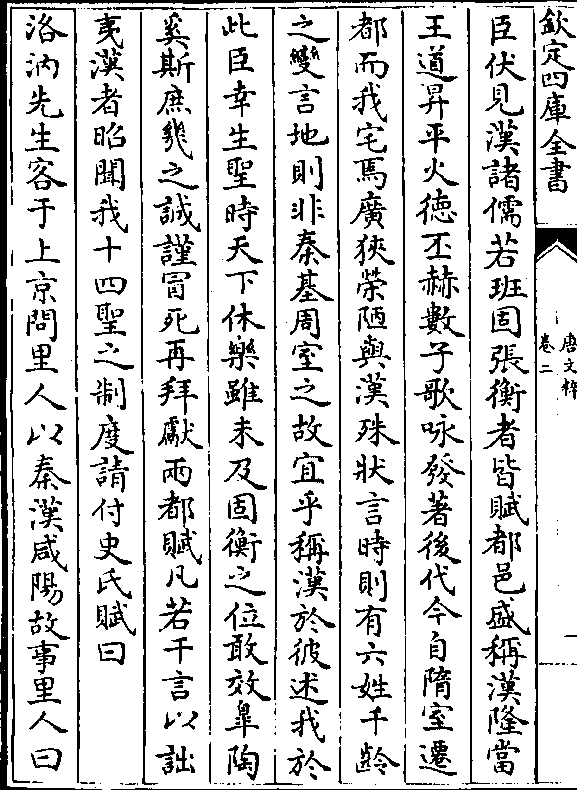 欽定四庫全書
唐文粹
卷二
一
臣伏見漢諸儒若班固張衡者皆賦都邑盛稱漢隆當
王道昇平火德丕赫數子歌咏發著後代今自隋室遷
都而我宅焉廣狹榮陋與漢殊狀言時則有六姓千齡
之變言地則非秦基周室之故宜乎稱漢於彼述我於
此臣幸生聖時天下休樂雖未及固衡之位敢效臯陶
奚斯庶幾之誠謹冒死再拜獻兩都賦凡若干言以詘
夷漢者昭聞我十四聖之制度請付史氏賦曰
洛汭先生客于上京問里人以秦漢咸陽故事里人曰